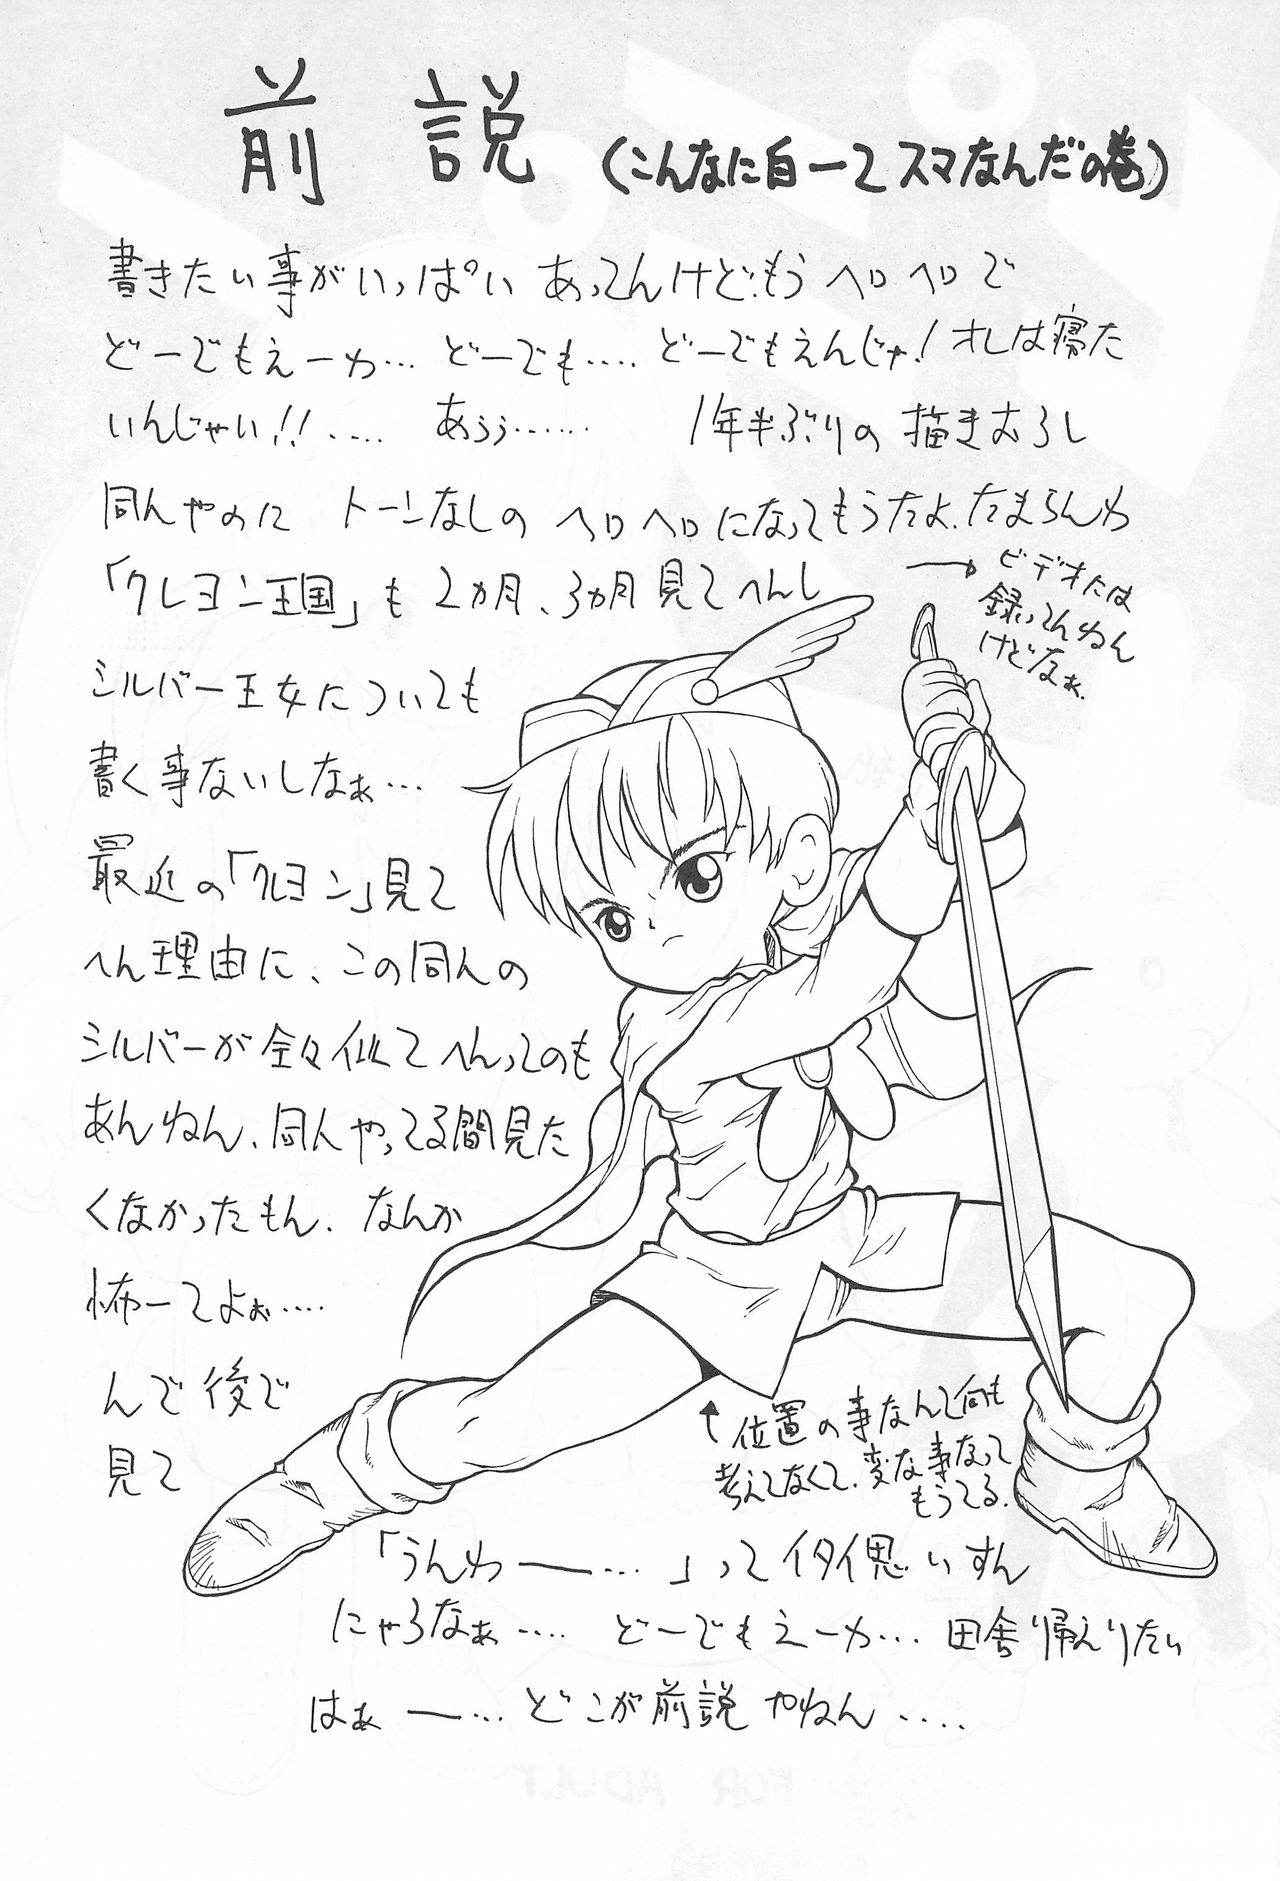 前説 (こんなに白ーてスマなんだの巻)
書きたい事がいっぱいあってんけど、もうヘロヘロで
どーでもえーわ… どーでも…. どーでもえんじゃ!オレは寝た
いんじゃい!!‥‥ あぅぅ…… 1年半ぶりの描きおろし
同人やのに トーンなしのヘロヘロになってもうたよ.たまらんわ
「クレヨン王国」も2ヵ月、3ヵ月見てへんし
→ビデオには
録ってんねん
けどなぁ.
シルバー王女についても
書く事ないしなぁ…
最近の「クレヨン」見て
へん理由に、この同人の
シルバーが全々似てへんってのも
あんねん、同人やってる間見た
くなかったもん. なんか
怖ーてよぉ‥‥
んで後で
見て
↑位置の事なんて何も
考えてなくて.変な事なって
もうてる.
「うんわー…」ってイタイ思いすん
にゃろなぁ‥‥ どーでもえーわ… 田舎り帰えりたい
はぁー… どこが前説やねん‥‥
FOR ADULT